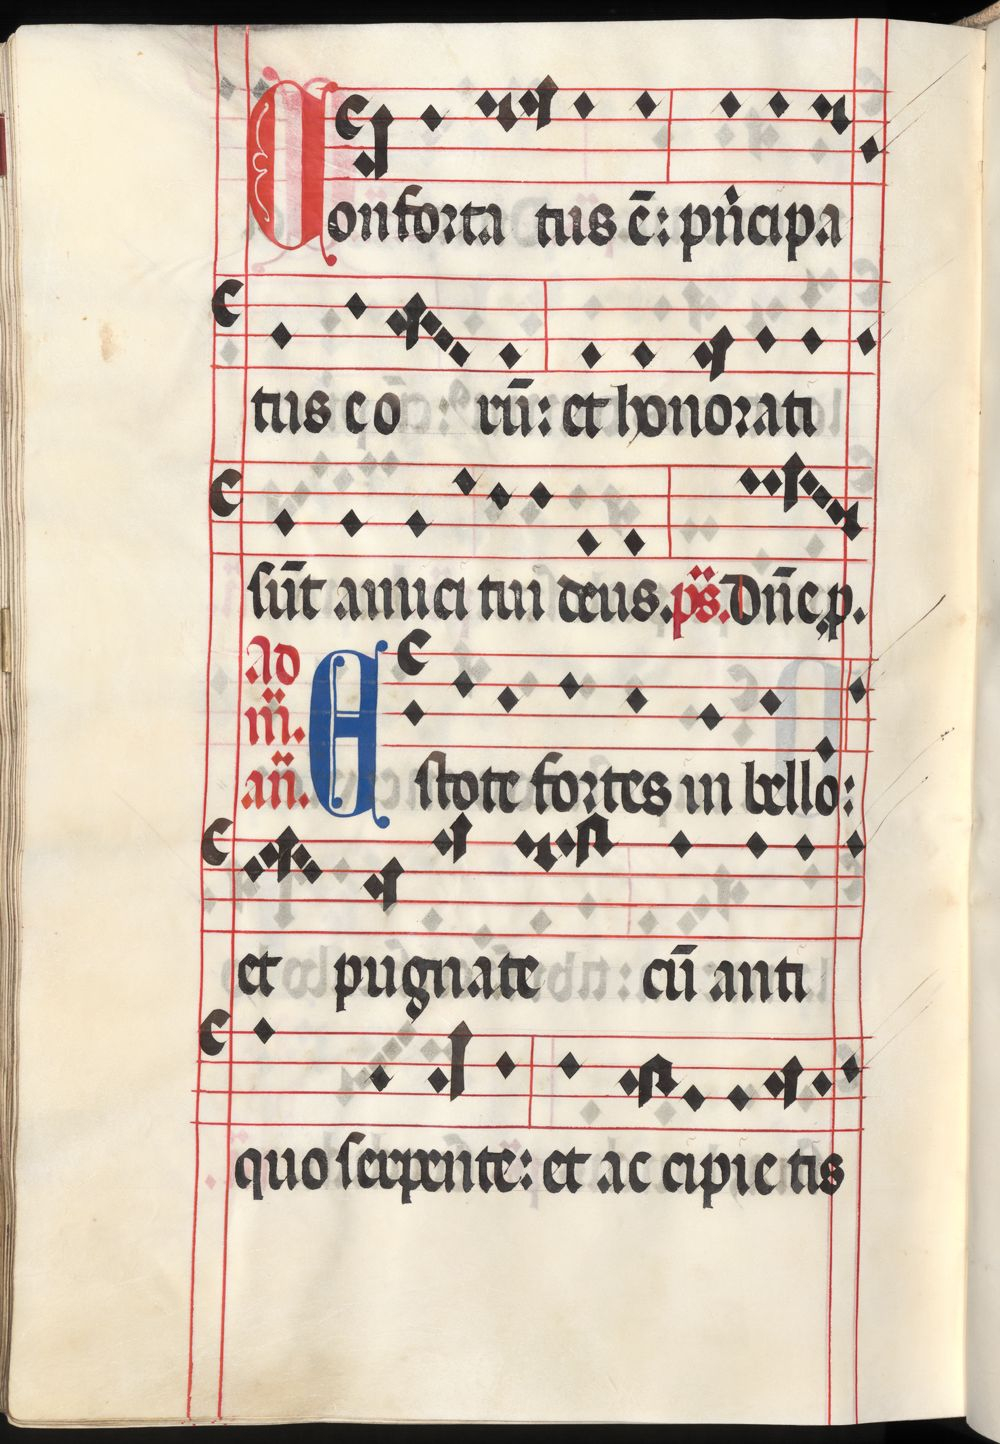 Conforta tus ē: pn̄cipa
tus e o rū: et honorati
sūt amici tui deus. ps. Dn̄e p.
Ad
m̄.
an̄. Estote fortes in bello:
et pugnate cū anti
quo serpente: et ac cipie tis